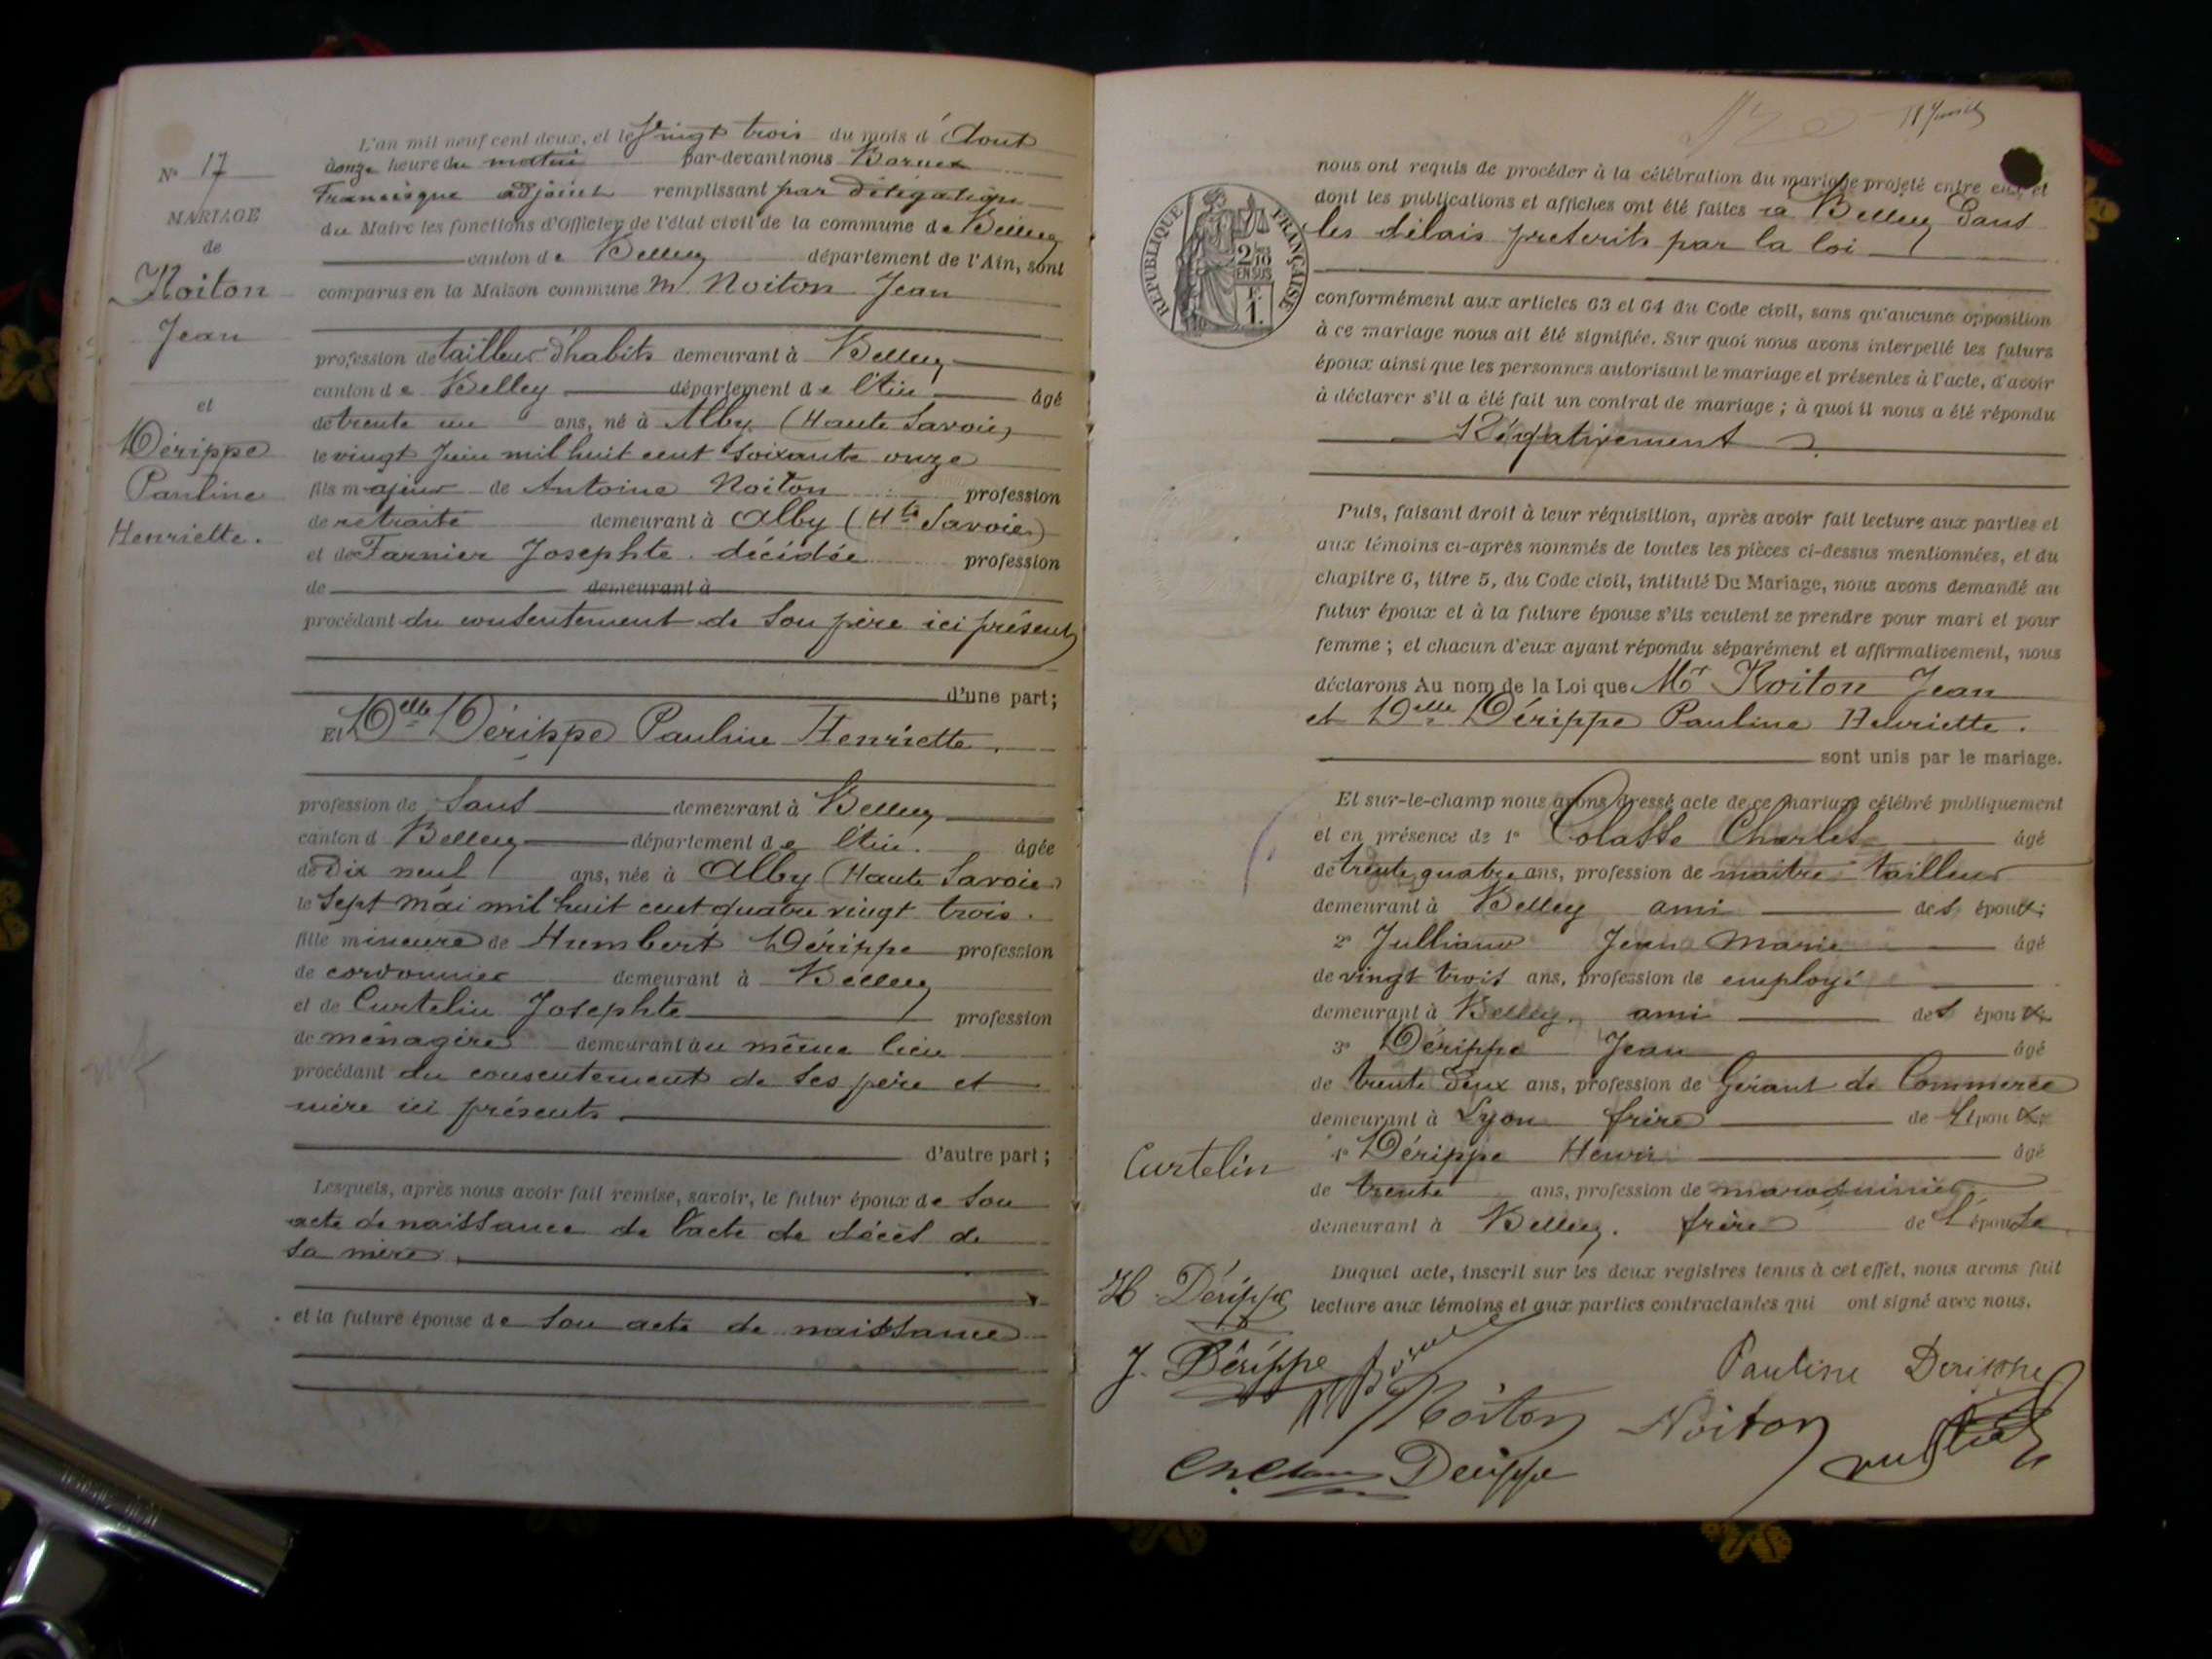 L'an mil neuf cent deux, et le vingt trois du mois d'Aout
à onze heure du matin par-devant nous
Francisque adjoint remplissant par délégation
du Maire les fonctions d'Officier de l'état civil de la commune de Belley
canton de Belley département de l'Ain, sont
comparus en la Maison commune Mr Noiton Jean
profession de tailleur d'habits demeurant à Belley
canton de Belley département de l'Ain âgé
de trente un ans, né à Alby (Haute Savoie)
le vingt Juin mil huit cent soixante onze
fils majeur de Antoine Noiton profession
de retraité demeurant à Alby (Hte Savoie)
et de Farnier Josephte décédée profession
de demeurant à
procédant du consentement de son père ici présent
d'une part;
Et Delle Dérippe Pauline Henriette.
profession de sans demeurant à Belley
canton d Belley département de l'Ain. âgée
de Dix neuf ans, née à Alby (Haute Savoie)
le sept mai mil huit cent quatre vingt trois.
fille mineure de Humbert Dérippe profession
de cordonnier demeurant à Belley
et de Curtelin Josephte profession
de ménagère demeurant au même lieu
procédant du consentement de ses père et
mère ici présents
d'autre part;
Lesquels, après nous avoir fait remise, savoir, le futur époux de son
acte de naissance de l'acte de décès de
sa mère
et la future épouse de son acte de naissance
N° 17
MARIAGE
de
Noiton
Jean
et
Dérippe
Pauline
Henriette.
nous ont requis de procéder à la célébration du mariage projeté entre eux et
dont les publications et affiches ont été faites à Belley Dans
les délais prescrits par la loi
RÉPUBLIQUE FRANÇAISE
2/10
EN SUS
F.
1.
conformément aux articles 63 et 64 du Code civil, sans qu'aucune opposition
à ce mariage nous ait été signifiée. Sur quoi nous avons interpellé les futurs
époux ainsi que les personnes autorisant le mariage et présentes à l'acte, d'avoir
à déclarer s'il a été fait un contrat de mariage; à quoi il nous a été répondu
Négativement
Puis, faisant droit à leur réquisition, après avoir fait lecture aux parties et
aux témoins ci-après nommés de toutes les pièces ci-dessus mentionnées, et du
chapitre 6, titre 5, du Code civil, intitulé Du Mariage, nous avons demandé au
futur époux et à la future épouse s'ils veulent se prendre pour mari et pour
femme; et chacun d'eux ayant répondu séparément et affirmativement, nous
déclarons Au nom de la Loi que Mr Noiton Jean
et Delle Dérippe Pauline Henriette.
sont unis par le mariage.
Et sur-le-champ nous avons dressé acte de ce mariage célébré publiquement
et en présence de 1° Colasse Charles âgé
de trente quatre ans, profession de maître tailleur
demeurant à Belley ami des époux;
2° Julliand Jean Marie âgé
de vingt trois ans, profession de employé
demeurant à Belley. ami des époux
3° Dérippe Jean âgé
de trente deux ans, profession de Gérant de Commerce
demeurant à Lyon frère de l'épou
4° Dérippe Henri âgé
de trente ans, profession de maroquinier
demeurant à Belley. frère de l'épouse
Duquel acte, inscrit sur les deux registres tenus à cet effet, nous avons fait
lecture aux témoins et aux parties contractantes qui ont signé avec nous.
Curtelin
H. Dérippe
J. Dérippe
Pauline Derippe
Noiton Noiton
Derippe